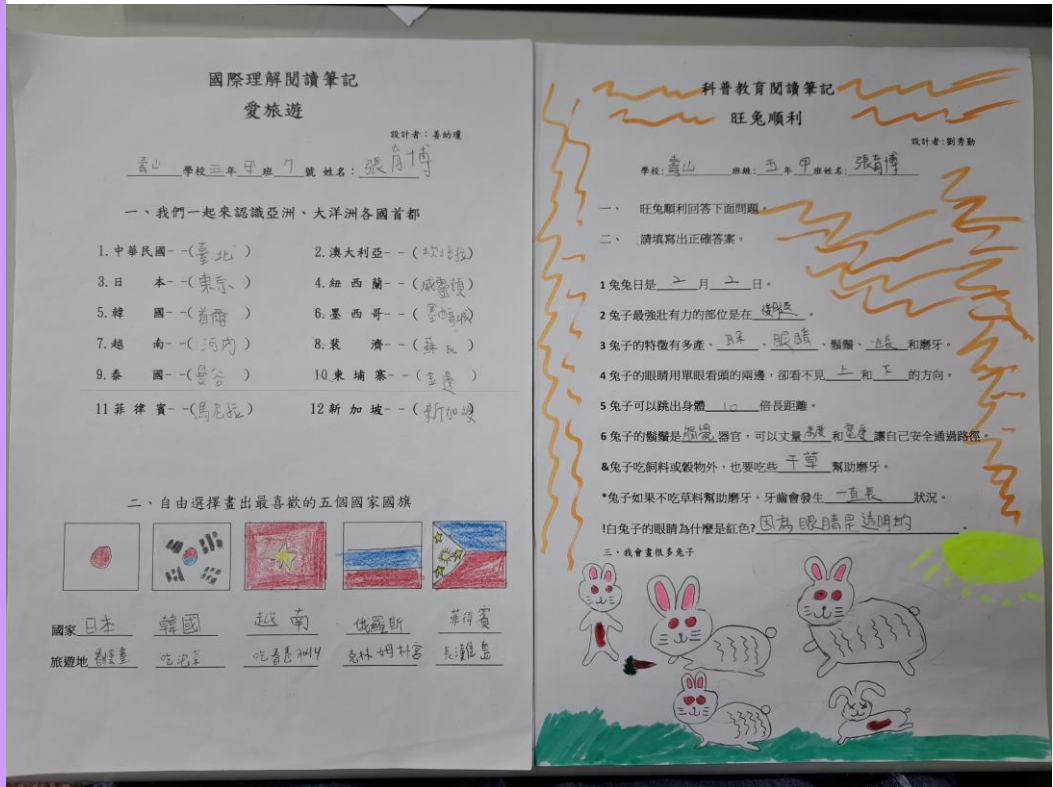 國際理解閱讀筆記
愛旅遊
設計者：姜的瓊
壽山 學校 三 年 甲 班 7 號 姓名：張育博
一、我們一起來認識亞洲、大洋洲各國首都
1.中華民國--(臺北)
2.澳大利亞--(坎培拉)
3.日 本--(東京)
4.紐西蘭--(威靈頓)
5.韓 國--(首爾)
6.墨西哥--(墨西哥城)
7.越 南--(河內)
8.裴 濟--(蘇瓦)
9.泰 國--(曼谷)
10.柬埔寨--(金邊)
11菲律賓--(馬尼拉)
12新加坡--(新加坡)
二、自由選擇畫出最喜歡的五個國家國旗
國家 日本 韓國 越南 俄羅斯 菲律賓
旅遊地 吃泡菜 克林姆林宮 長灘島
科普教育閱讀筆記
旺兔順利
設計者:劉秀勤
學校：壽山 班級：五年甲班姓名：張育博
一、 旺兔順利回答下面問題。
二、 請填寫出正確答案。
1 兔兔日是 2 月 2 日。
2 兔子最強壯有力的部位是在 後腿 。
3 兔子的特徵有多產、耳朵、眼睛、鬍鬚、 和磨牙。
4 兔子的眼睛用單眼看頭的兩邊，卻看不見 上 和 下 的方向。
5 兔子可以跳出身體 10 倍長距離。
6 兔子的鬍鬚是 觸覺 器官，可以丈量 高度 和 寬度 讓自己安全通過路徑。
&兔子吃飼料或穀物外，也要吃些 干草 幫助磨牙。
*兔子如果不吃草料幫助磨牙，牙齒會發生 一直長 狀況。
!白兔子的眼睛為什麼是紅色? 因為眼睛是透明的 。
三、我會畫很多兔子